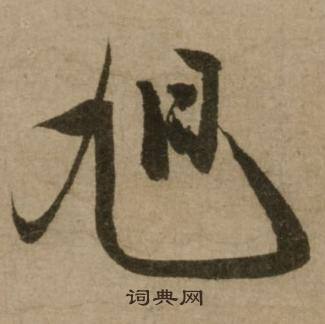 旭
词典网